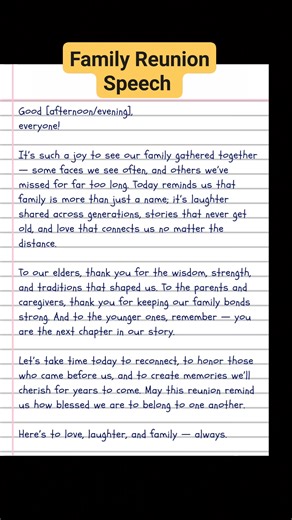 Family Reunion
Speech
Good [afternoon/evening],
everyone!
It's such a joy to see our family gathered together
— some faces we see often, and others we've
missed for far too long. Today reminds us that
family is more than just a name; it's laughter
shared across generations, stories that never get
old, and love that connects us no matter the
distance.
To our elders, thank you for the wisdom, strength,
and traditions that shaped us. To the parents and
caregivers, thank you for keeping our family bonds
strong. And to the younger ones, remember — you
are the next chapter in our story.
Let's take time today to reconnect, to honor those
who came before us, and to create memories we'll
cherish for years to come. May this reunion remind
us how blessed we are to belong to one another.
Here's to love, laughter, and family — always.